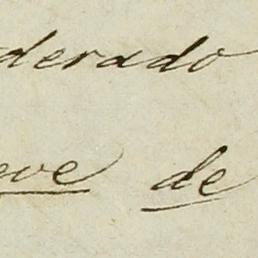 derado
eve de